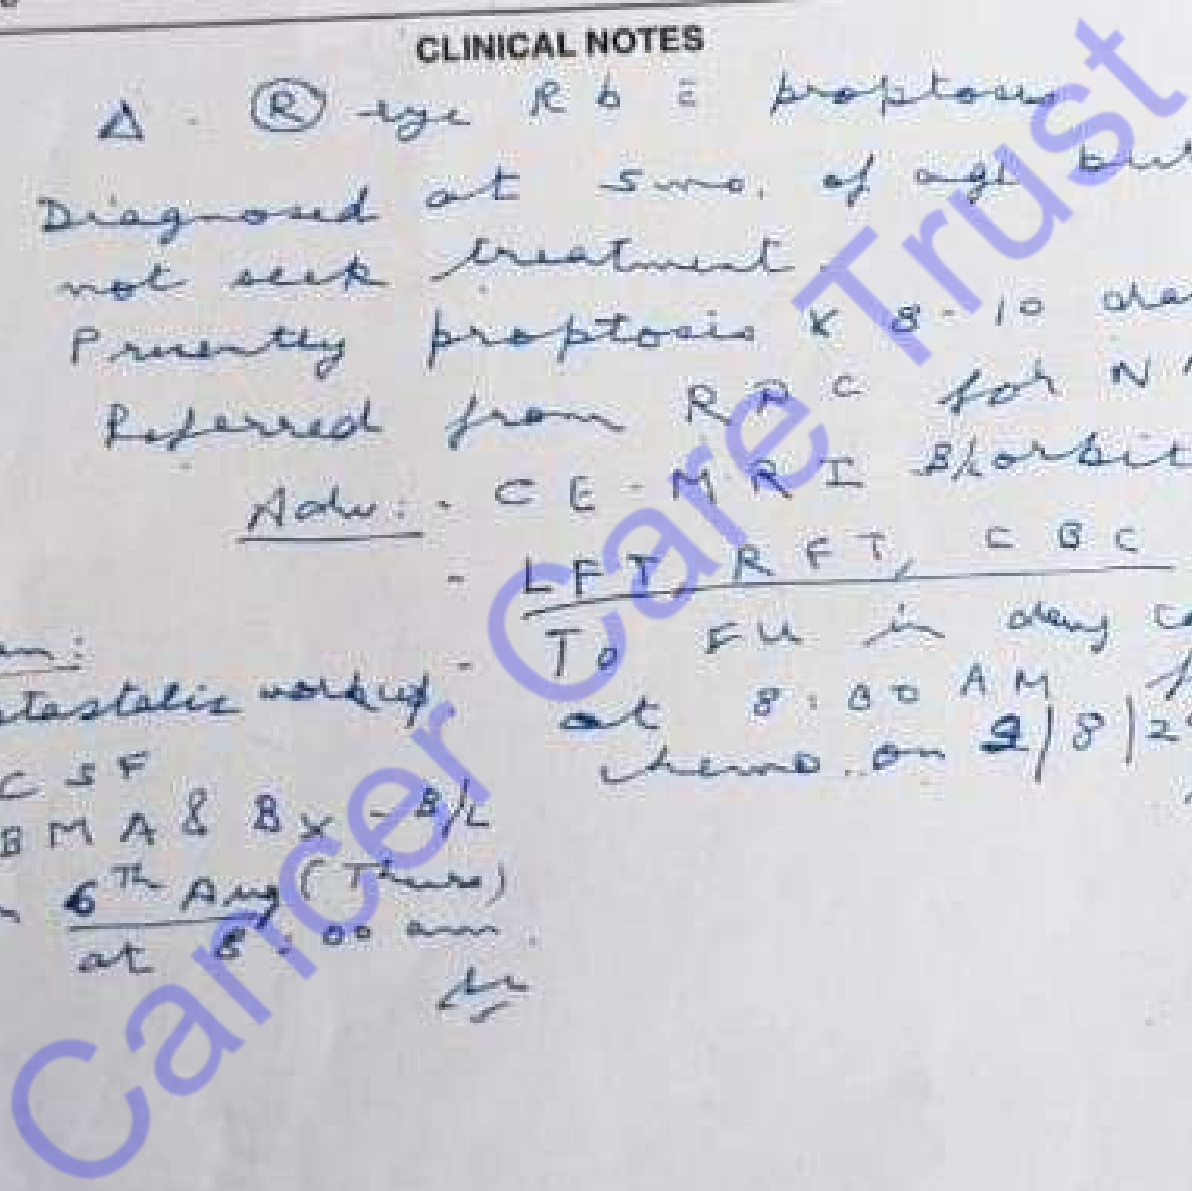 CLINICAL NOTES
Δ - Ⓡ eye Rb c̄ proptosis
Diagnosed at 5 mo. of age but
not seek treatment.
Presently proptosis x 8-10
Referred from RPC for
Adv: - CE-MRI B/L orbit
- LFT, RFT, CBC
- To FU in day
at 8:00 AM
chemo. on
workup
CSF
BMA & Bx - B/L
6th Aug (Thurs)
at 8:00 am.
Cancer Care Trust